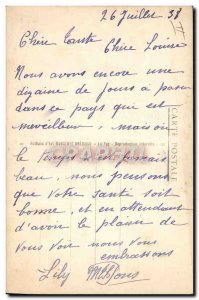 26 Juillet 38
Chère Tante Chère Louise
Nous avons encore une
dizaine de jours à passer
dans ce pays qui est
merveilleux, mais où
le temps est jamais
beau, nous pensons
que votre santé soit
bonne, et en attendant
d'avoir le plaisir de
vous voir nous vous
embrassons
Lily
CARTE POSTALE